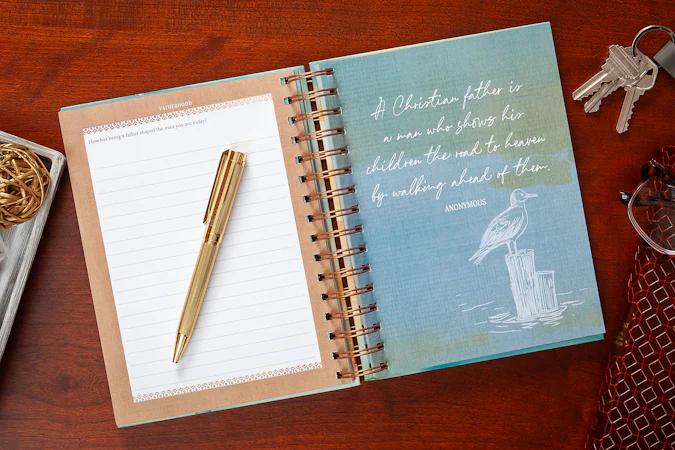 FATHERHOOD
How has being a father shaped the man you are today?
A Christian father is
a man who shows his
children the road to heaven
by walking ahead of them.
ANONYMOUS